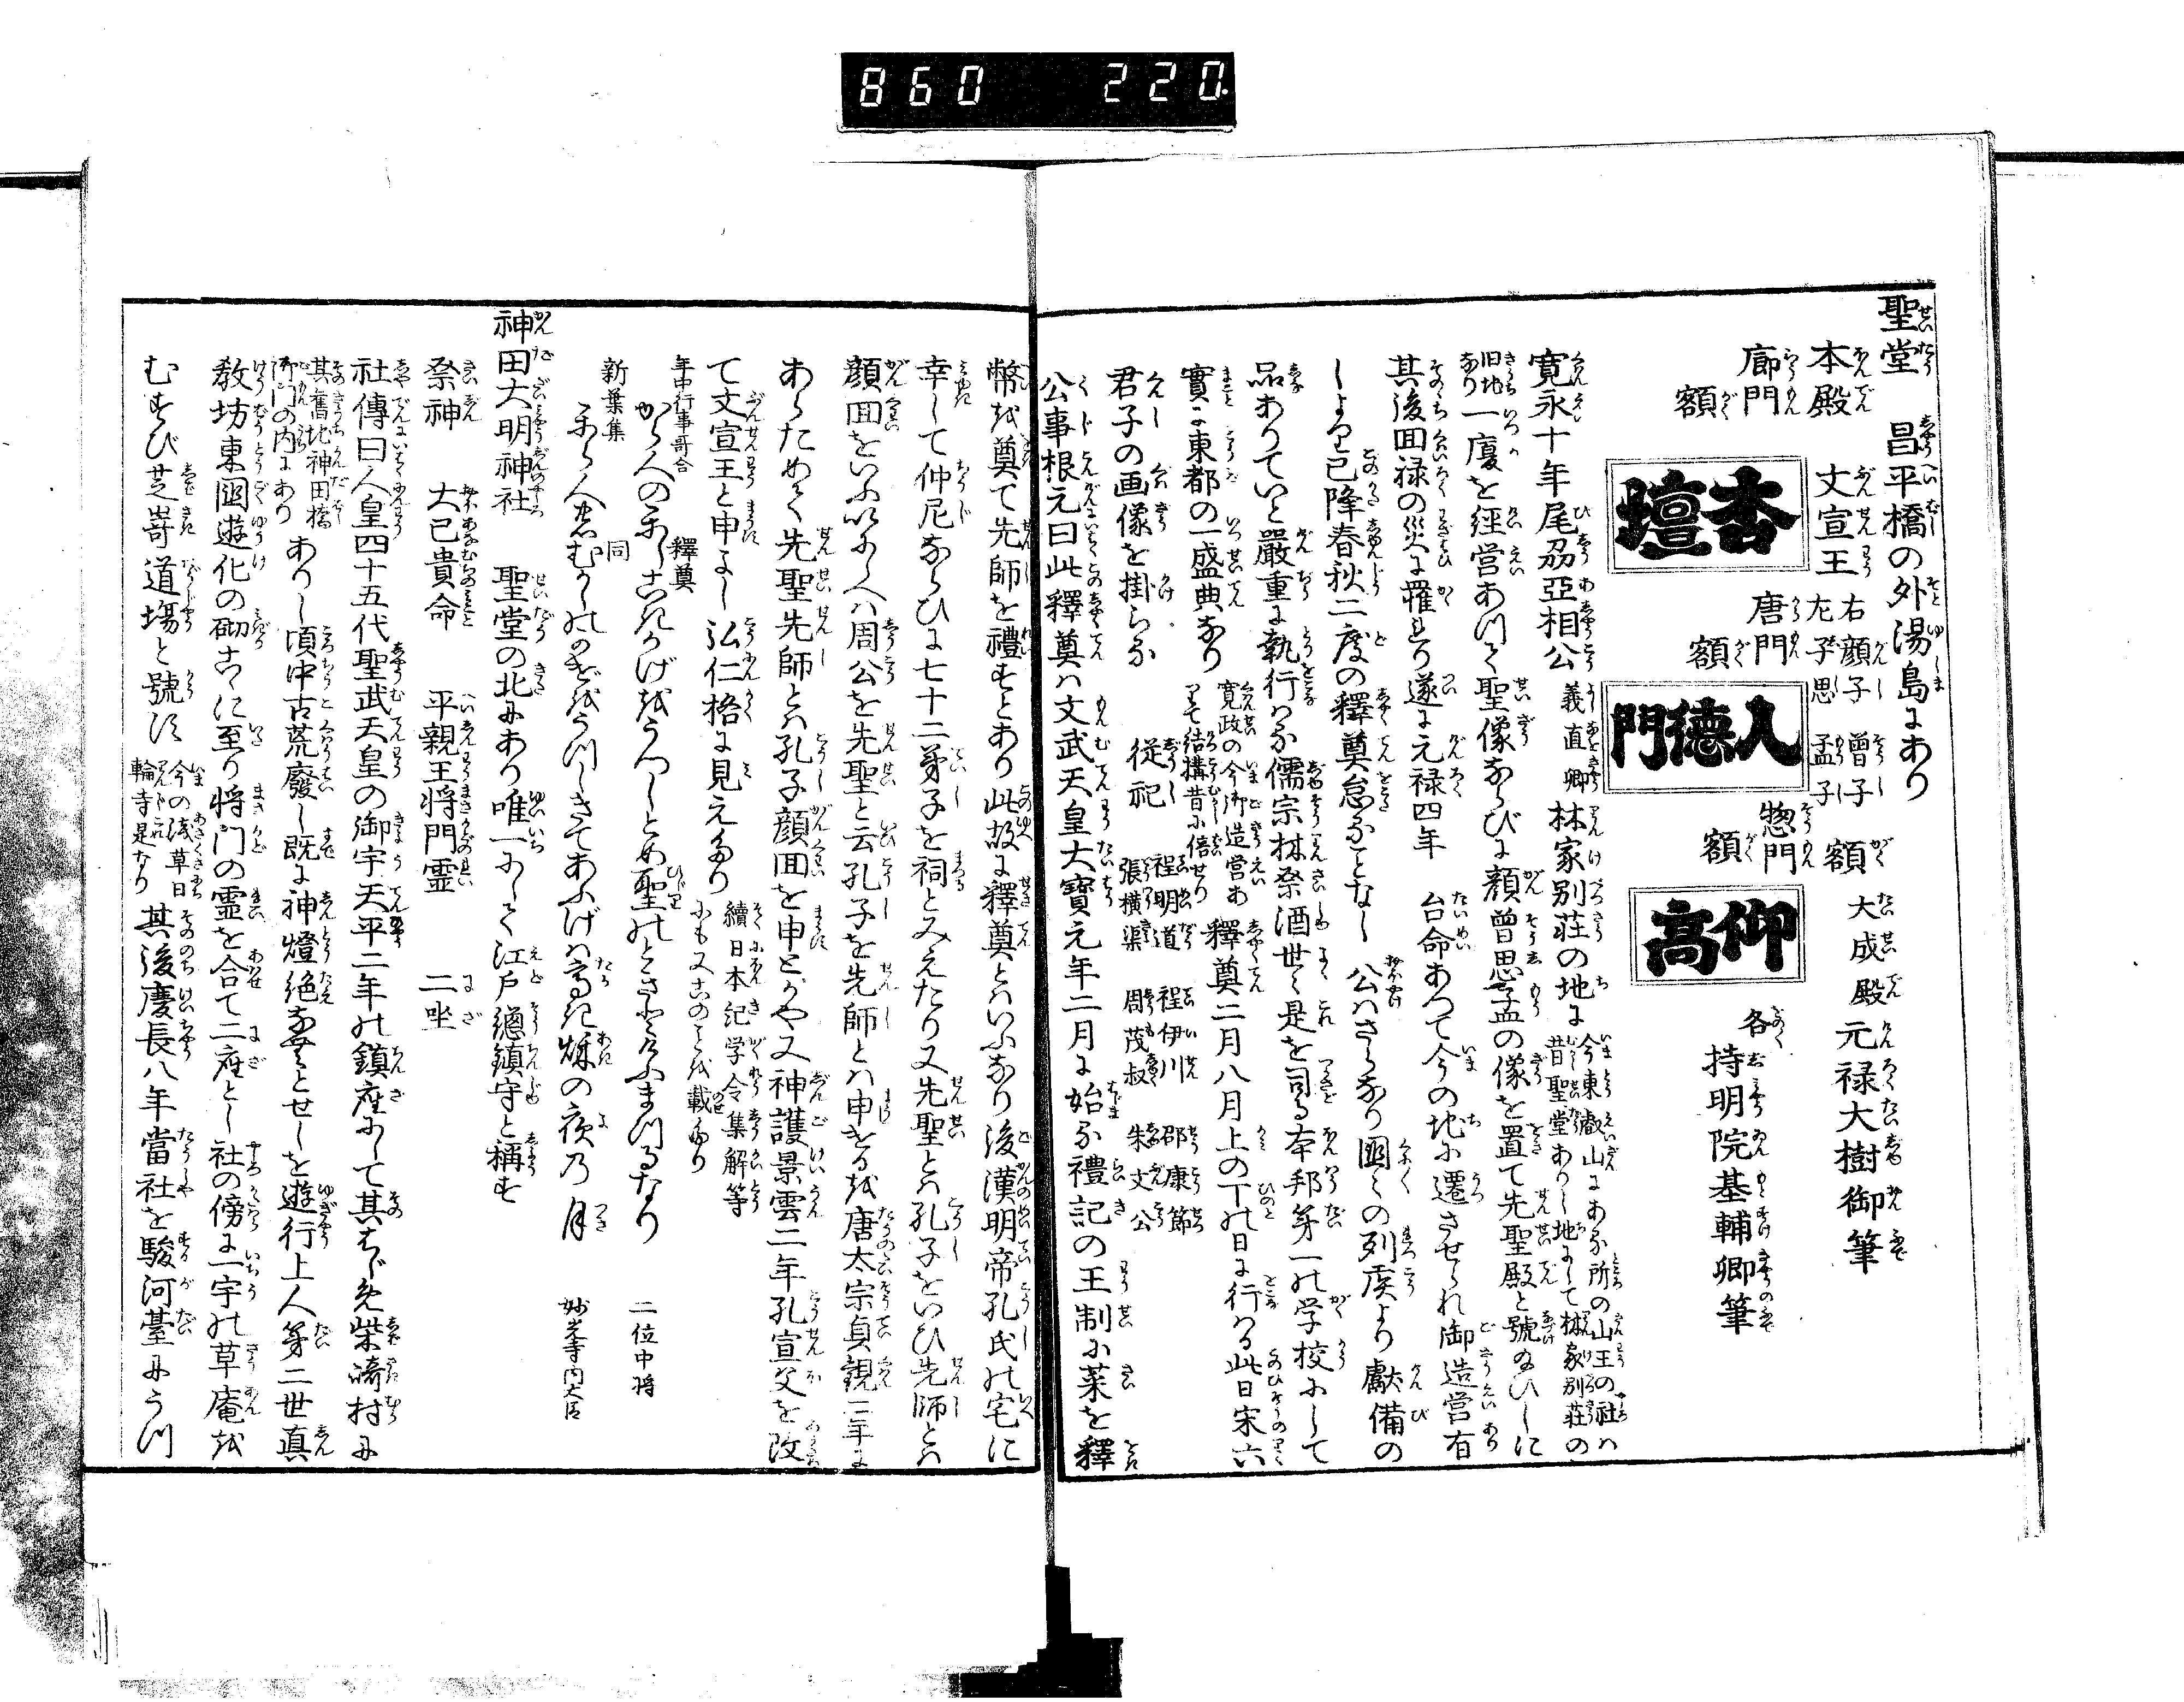 860 220
聖堂 昌平橋の外湯島にあり
本殿 文宣王 右 顔子 曽子 左 子思 孟子 額 大成殿 元禄大樹御筆
廊門額 杏壇 唐門額 入徳門 惣門額 仰高 各持明院基輔卿筆
寛永十年尾刕亜相公 義直卿 林家別荘の地に 今東叡山にある所の山王の社ハ昔聖堂ありし地にして林家別荘の
旧地なり 一廈を經営あつて聖像ならびに顔曽思孟の像を置て先聖殿と號給ひしに
其後囬禄の災に罹り遂に元禄四年 台命あつて今の地に遷させられ御造営有
しより已降春秋二度の釋奠怠る事なし 公ハさらなり國々の列矦より獻備の
品ありていと嚴重に執行ハる儒宗林祭酒世々是を司る本邦第一の学校にして
實に東都の一盛典なり 寛政の今御造営ありて結構昔に倍せり 釋奠二月八月上の丁の日に行ハる此日宋六
君子の画像を掛らる 従祀 程明道 程伊川 邵康節 張横渠 周茂叔 朱文公
公事根元曰此釋奠ハ文武天皇大寳元年二月に始る禮記の王制に菜を釋
幣を奠て先師を禮すとあり此故に釋奠とハいふなり後漢明帝孔氏の宅に
幸して仲尼ならひに七十二弟子を祠とみえたり又先聖とハ孔子をいひ先師とハ
顔囬をいふ以前ハ周公を先聖と云孔子を先師とハ申せるを唐太宗貞観二年に
あらためて先聖先師とハ孔子顔囬を申とかや又神護景雲二年孔宣父を改
て文宣王と申よし弘仁格に見えたり 續日本紀学令集解等にも又このことを載たり
年中行事哥合 釋奠
から人のかしこきかげをうつしとめ聖のときとけふまつるなり 二位中将
新葉集 同
からくに人むかしのかげをうつしきてあふげハ高き秌の夜乃月 妙光寺内大臣
神田大明神社 聖堂の北にあり唯一にして江戸總鎮守と稱す
祭神 大己貴命 平親王将門霊 二坐
社傳曰人皇四十五代聖武天皇の御宇天平二年の鎮座にして其はじめ柴﨑村に
其舊地神田橋御門の内にあり ありし頃中古荒廢し既に神燈絶なんとせしを遊行上人第二世真
教坊東國遊化の砌こゝに至り将門の霊を合て二座とし社の傍に一宇の草庵を
むすび芝﨑道塲と號す 今の浅草日輪寺是なり 其後慶長八年當社を駿河臺にうつ